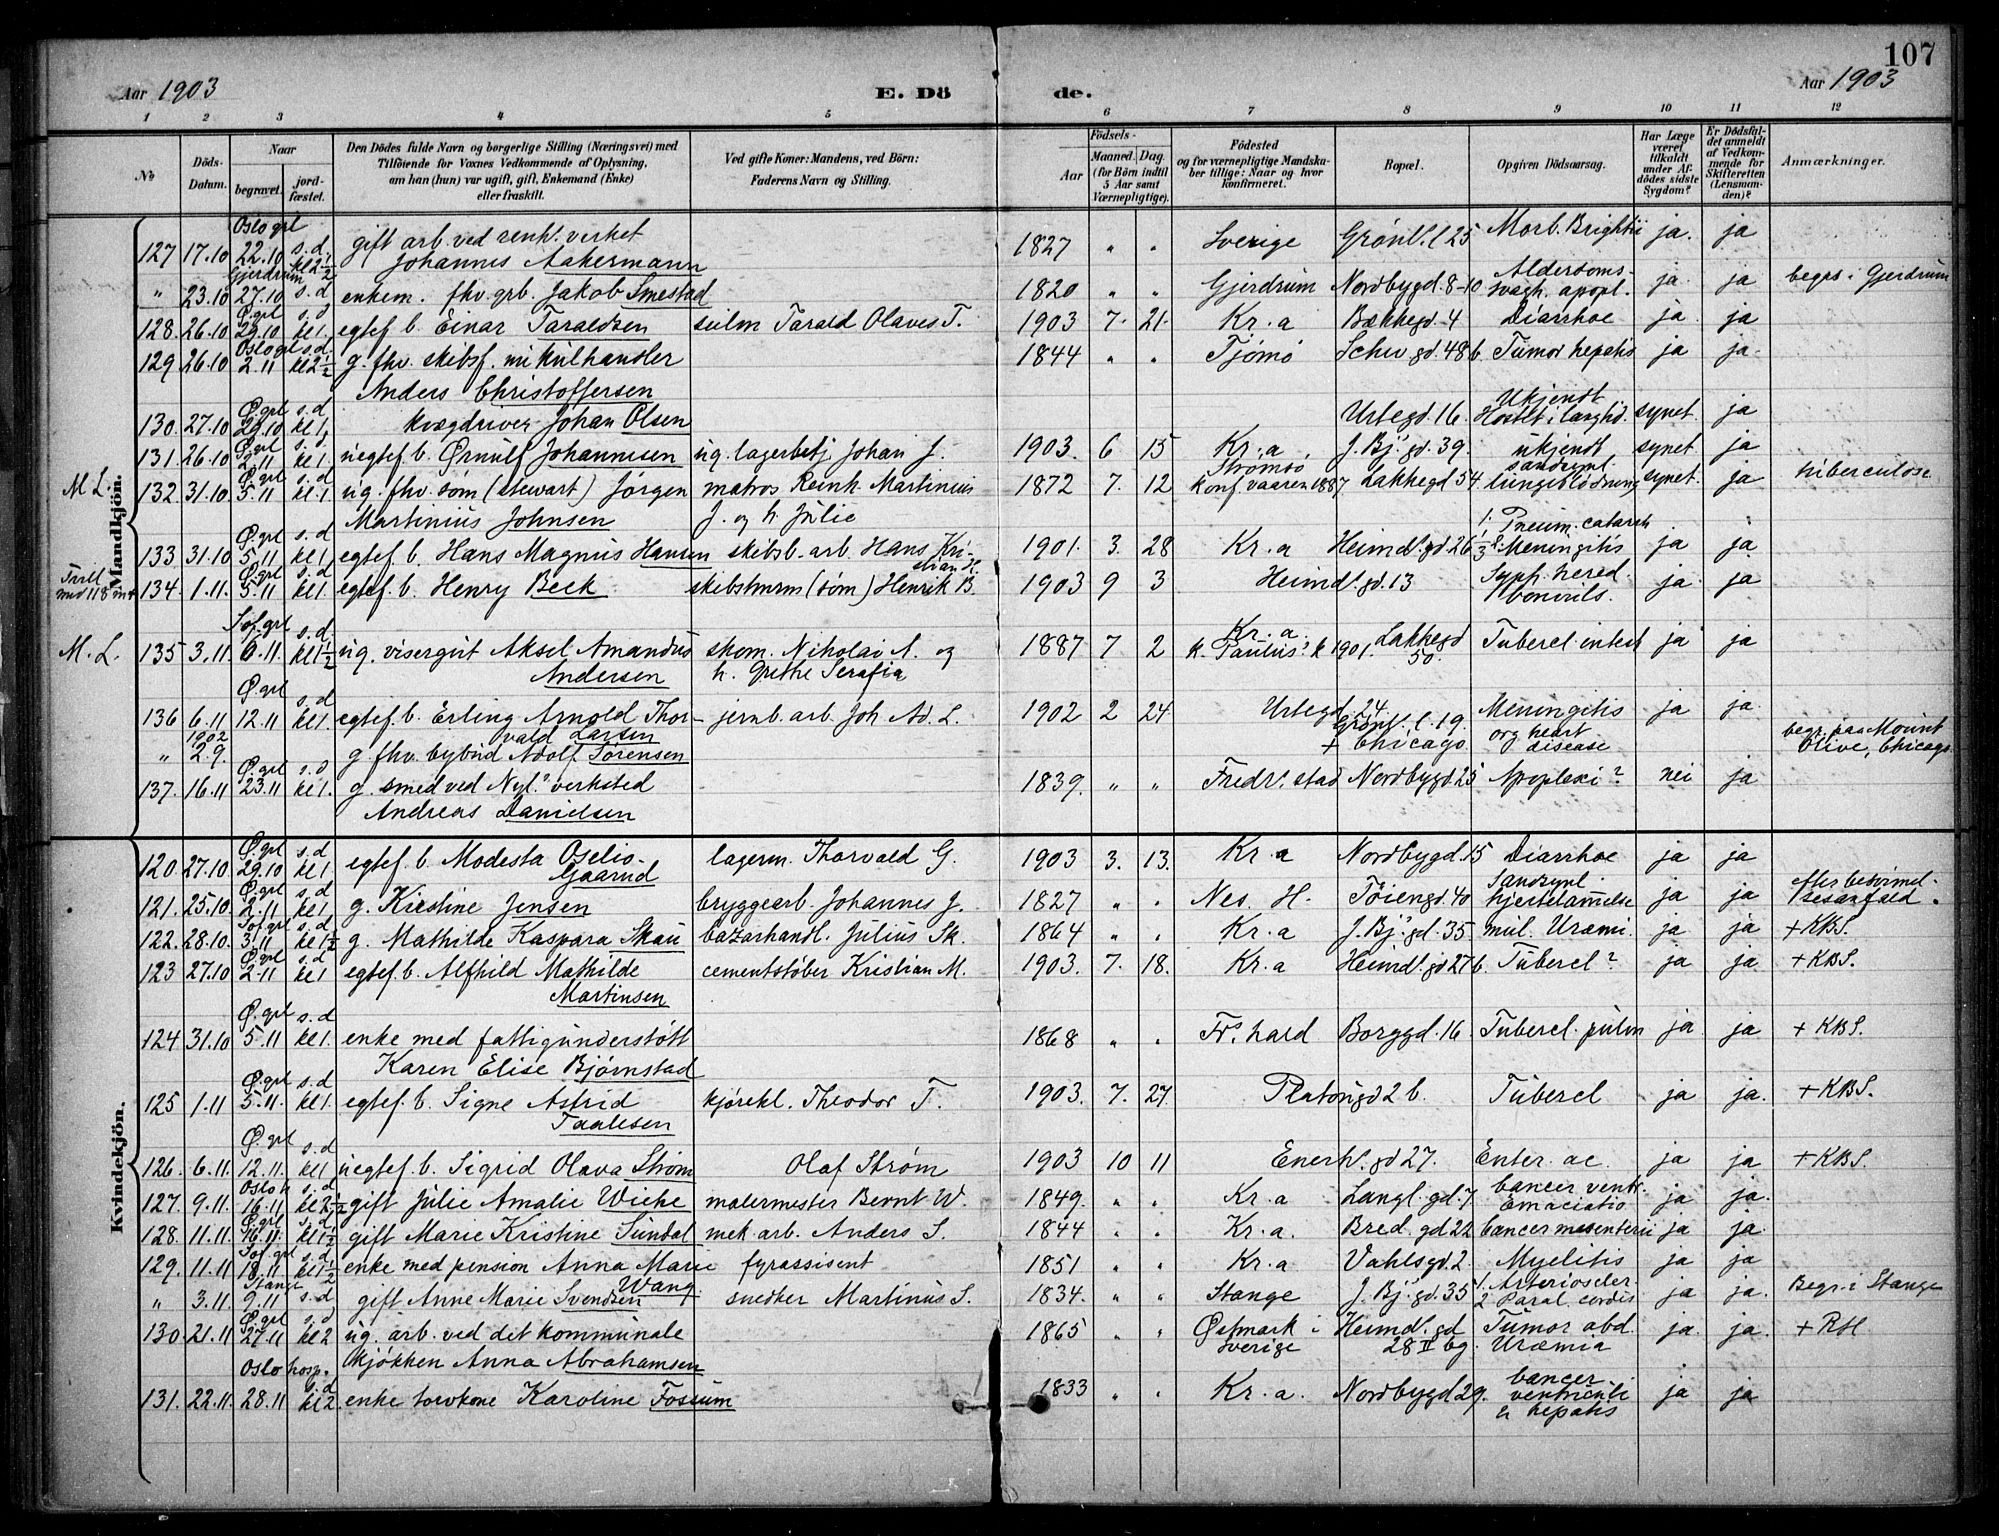 107
Aar 1903
E. Dö
de.
Aar 1903
1 2 3 4 5 6 7 8 9 10 11 12
No
Döds-Datum.
Naar
begravet.
jord-fæstet.
Den Dödes fulde Navn og borgerlige Stilling (Næringsvei) med
Tilföiende for Voxnes Vedkommende af Oplysning,
om han (hun) var ugift, gift, Enkemand (Enke)
eller fraskilt.
Ved gifte Koner: Mandens, ved Börn:
Faderens Navn og Stilling.
Födsels-
Aar
Maaned. Dag.
(for Börn indtil
5 Aar samt
Værnepligtige).
Födested
og for værnepligtige Mandska-
ber tillige: Naar og hvor
konfirmeret.
Bopæl.
Opgiven Dödsaarsag.
Har Læge
været
tilkaldt
under Af-
dödes sidste
Sygdom?
Er Dödsfal-
det anmeldt
af Vedkom-
mende for
Skifteretten
(Lensman-
den)?
Anmærkninger.
Mandkjön.
Oslo grl
127 17.10 22.10 s.d kl 2½ gift arb. ved renh. verket 1827 " " Sverige Grönl. l 25 Morb. Brightii ja. ja
Johannes Aakermann
Gjerdrum
" 23.10 27.10 s.d enkem. fhv. grb. Jakob Smestad 1820 " " Gjerdrum Nordbygd. 8-10 Alderdoms-svagh. apopl. ja ja begr. i Gjerdrum
128. 26.10 Ø.grl 29.10 s.d kl 1. egtef. b. Einar Taraldsen seilm Tarald Olaves T. 1903 7. 21. Kr.a Bækkegd. 4 Diarrhoe ja. ja
129. 26.10 Oslo grl 2.11 s.d. kl 2½ g. fhv. skibsf. nu kulhandler 1844 " " Tjømø Schw gd. 48 b. Tumor hepatis ja ja.
Anders Christoffersen
130. 27.10 Ø.grl 29.10 s.d kl 1. kvægdriver Johan Olsen Urtegd. 16. Ukjendt synet. ja
131. 26.10 Ø.grl 2.11 s.d. kl 1. uegtef. b. Ørnulf Johannesen ug. lagerbetj Johan J. 1903. 6 15 Kr.a J. Bj. gd. 39. ukjendt synet. ja
M L. 132. 31.10 Ø.grl 5.11 s.d kl 1 ug. fhv. søm (stewart) Jørgen matros Reinh. Martinius 1872 7. 12 Strømsö konf. vaaren 1887 Lakkegd 54 sandsynl. lungeblödning synet. ja tuberculose
Martinius Johnsen J. og h. Julie
133 31.10 Ø.grl 5.11 s.d kl 1 egtef. b. Hans Magnus Hansen skibsb. arb. Hans Kri-stian H. 1901. 3. 28 Kr.a Heimdl. gd 26 Pneum. catarrh Meningitis ja ja
134. 1.11. Ø.grl 5.11 s.d kl 1. egtef. b. Henry Beck skibstmrm (søm) Henrik B. 1903 9 3 Heimdl. gd. 13 Syph. hered. ja. ja
M. L. 135 3.11 Sof.grl 6.11 s.d. kl 1½ ug. visergut Aksel Amandus skom. Nikolai A. og 1887 7 2 Kr.a. k. Paulus' k 1901. Lakkegd 50. Tubercl. intest ja ja
Andersen h. Grethe Serafia
136 6.11 Ø.grl 12.11 s.d kl 1. egtef. b. Erling Arnold Thor- jernb. arb. Joh. Ad. L. 1902 2 24 Urtegd. 24. Meningitis ja ja.
vald Larsen
" 1902 2 9. g. fhv. bybud Adolf Sørensen Grönl. l. 19. + Chicago. org heart disease begr. paa Mount Olive, Chicago
137. 16.11 Ø.grl 23.11 s.d kl 1. g. smed ved Nyl.s verksted 1839. " " Fredr.stad Nordbygd 25 Apoplexi? nei ja
Andreas Danielsen
Kvindekjön.
120. 27.10 Ø.grl 29.10 s.d kl 1. egtef. b. Modesta Oselio- lagerm. Thorvald G. 1903 3. 13. Kr.a Nordbygd. 15 Diarrhoe ja ja
Gaarud
121. 25.10. Ø.grl 2.11 s.d kl 1 g. Kirstine Jensen bryggearb. Johannes J. 1827 " " Nes. H. Töiengd. 40 Sandsynl. hjertelammelse ja ja
122. 28.10. Sof.grl 3.11 s.d kl 1½ g. Mathilde Kaspara Skau bazarhandl. Julius Sk. 1864 " " Kr.a J. Bj. gd. 35 Uræmi. ja ja + KBS.
123 27.10 Ø.grl 2.11 s.d kl 1 egtef. b. Alfhild Mathilde cementstøber Kristian M. 1903. 7. 18. Kr.a Heimdl. gd 27 b. Tubercl? ja ja. + KBS.
Martinsen
124 31.10 Ø.grl 5.11 s.d kl 1. enke med fattigunderstøtt 1868 " " Fr.s hard Borggd. 16 Tubercl. pulm ja ja. + KBS.
Karen Elise Bjørnstad
125 1.11 Ø.grl 5.11. s.d kl 1. egtef. b. Signe Astrid kjørekl. Theodor T. 1903. 7. 27. Platousgd 2 b. Tubercl ja ja. + KBS.
Taalesen
126. 6.11. Ø.grl 12.11. s.d kl 1 uegtef. b. Sigrid Olava Strøm Olaf Strøm 1903 10 11 Enerh. gd 27. Enter. ac. ja ja + KBS.
127. 9.11. Oslo k 16.11 s.d kl 2½ gift Julie Amalie Wicke malermester Bernt W. 1849. " " Kr.a Langl. gd. 7 Cancer ventr. Emaciatio ja ja.
128. 11.11. Ø.grl 16.11. s.d kl 1½ gift Marie Kristine Sundal mek. arb. Anders S. 1844 " " Kr.a. Bred. gd 22 Cancer mesenterii ja ja.
129. 11.11 Sof.grl 18.11 s.d kl 1½ enke med pension Anna Marie fyrassisent 1851 " " Kr.a Vahlsgd. 2. Myelitis ja ja
Wang.
" 3.11 Stange 9.11 s.d gift Anne Marie Svendsen snedker Martinus S. 1834. " " Stange J. Bj. gd. 35 1. Arterioscler. 2 Paral. cordis ja. ja. Begr. i Stange
130. 21.11 Ø.grl 27.11 s.d kl 2 ug. arb. ved det kommunale 1865 " " Østmark i Sverige Heimdl. gd 28 II bg. Tumor abd. Uræmia ja. ja. + RH
kjøkken Anna Abrahamsen
Oslo hosp.
131. 22.11. 28.11 s.d kl 2 enke torvkone Karoline Fossum 1833 " " Kr.a. Nordbygd 29. Cancer ventriculi & hepatis ja ja